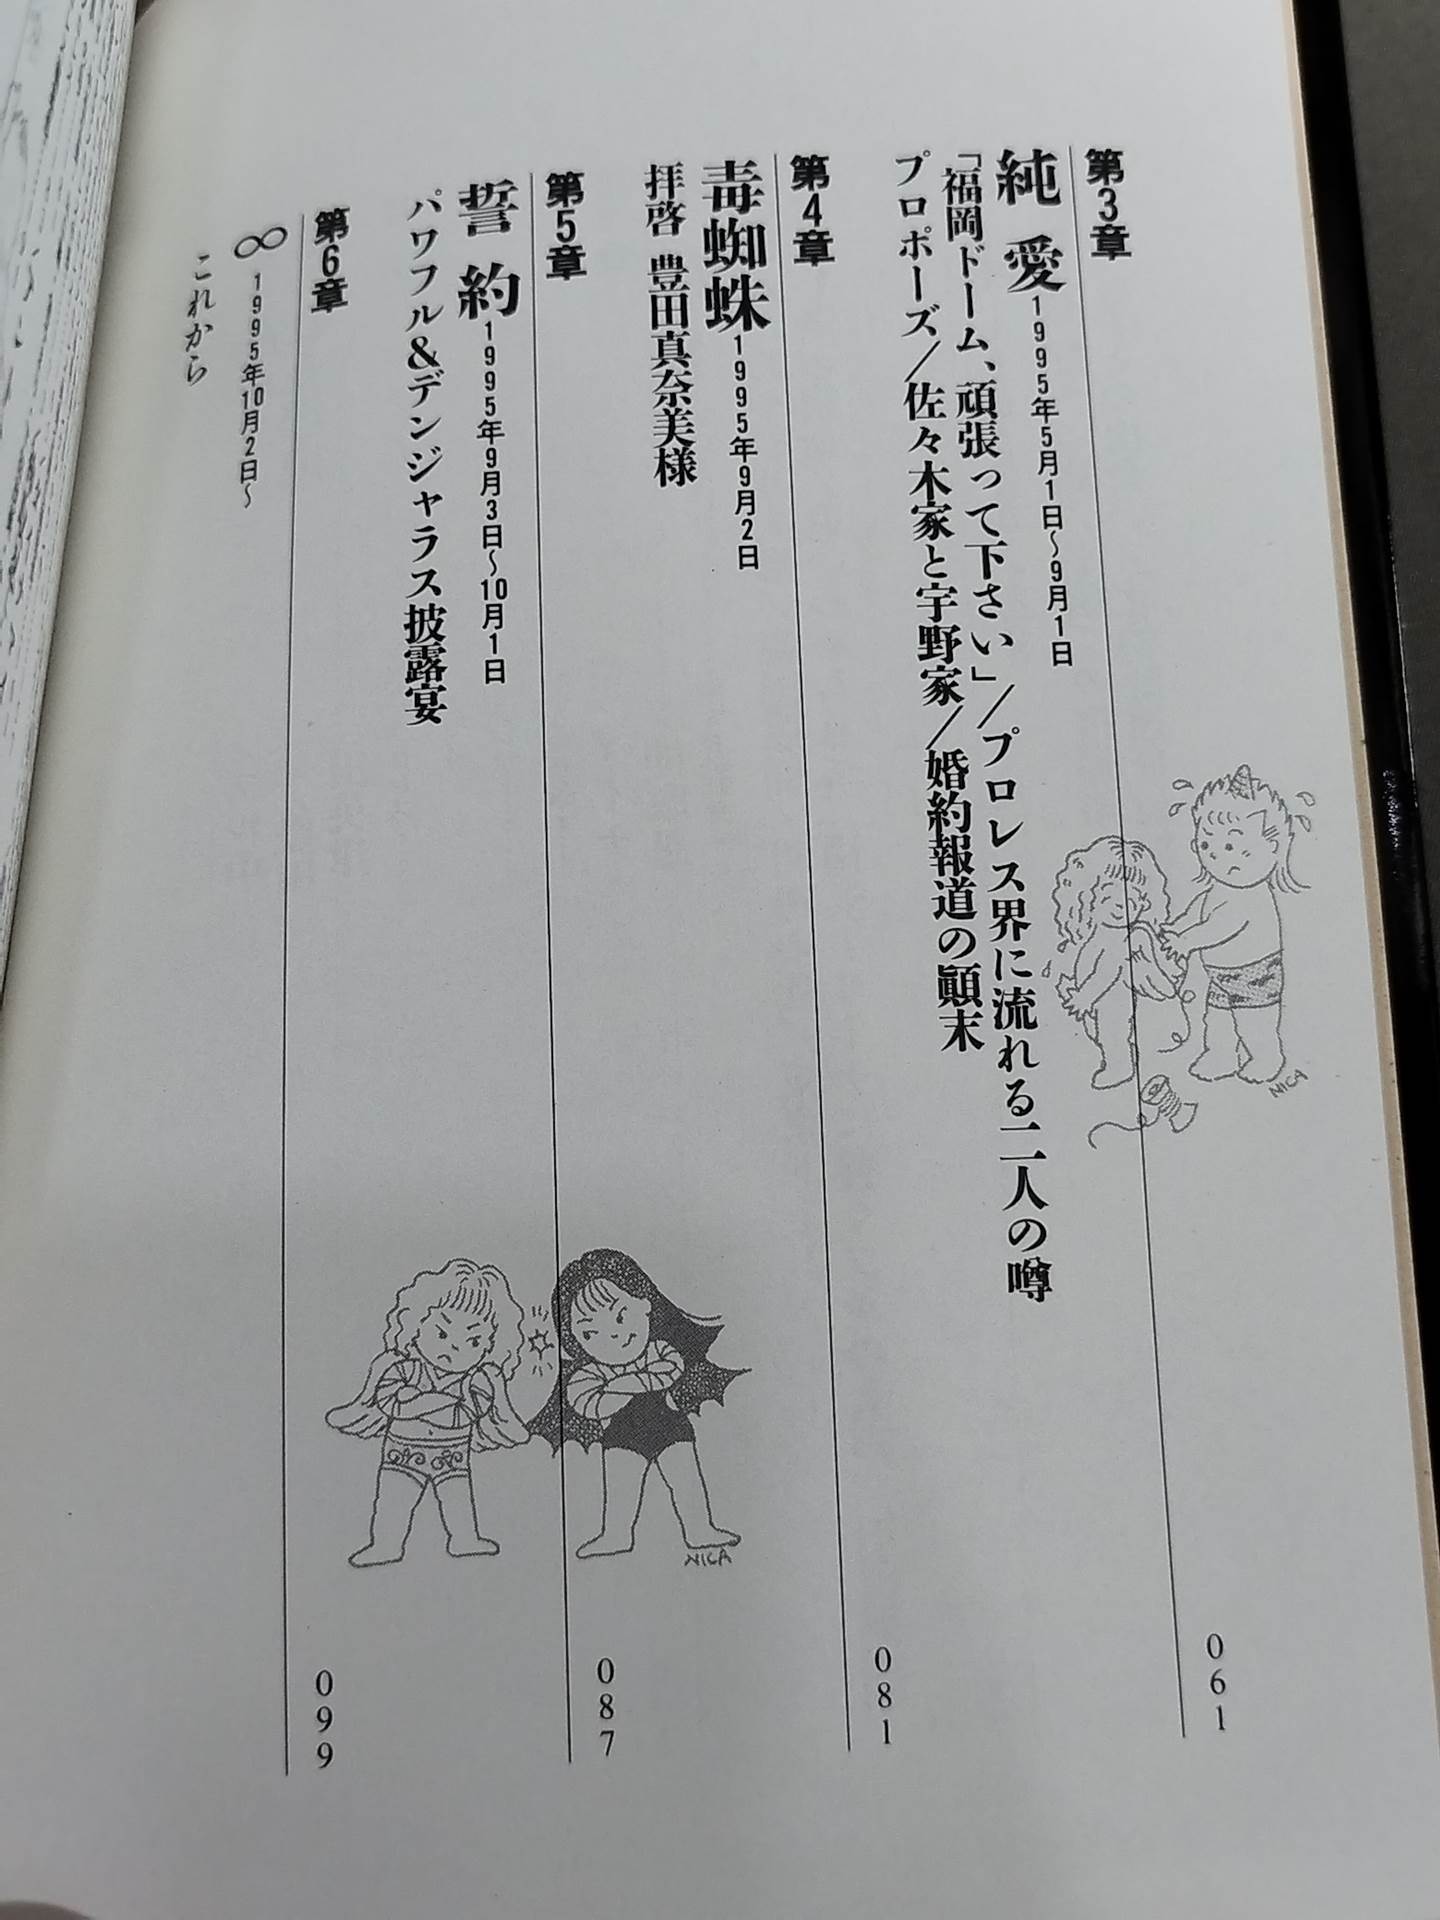 第3章
純愛 1995年5月1日〜9月1日
「福岡ドーム、頑張って下さい」／プロレス界に流れる二人の噂
プロポーズ／佐々木家と宇野家／婚約報道の顚末
061
第4章
毒蜘蛛 1995年9月2日
拝啓 豊田真奈美様
081
第5章
誓約 1995年9月3日〜10月1日
パワフル&デンジャラス披露宴
087
第6章
∞ 1995年10月2日〜
これから
099
NICA
NICA